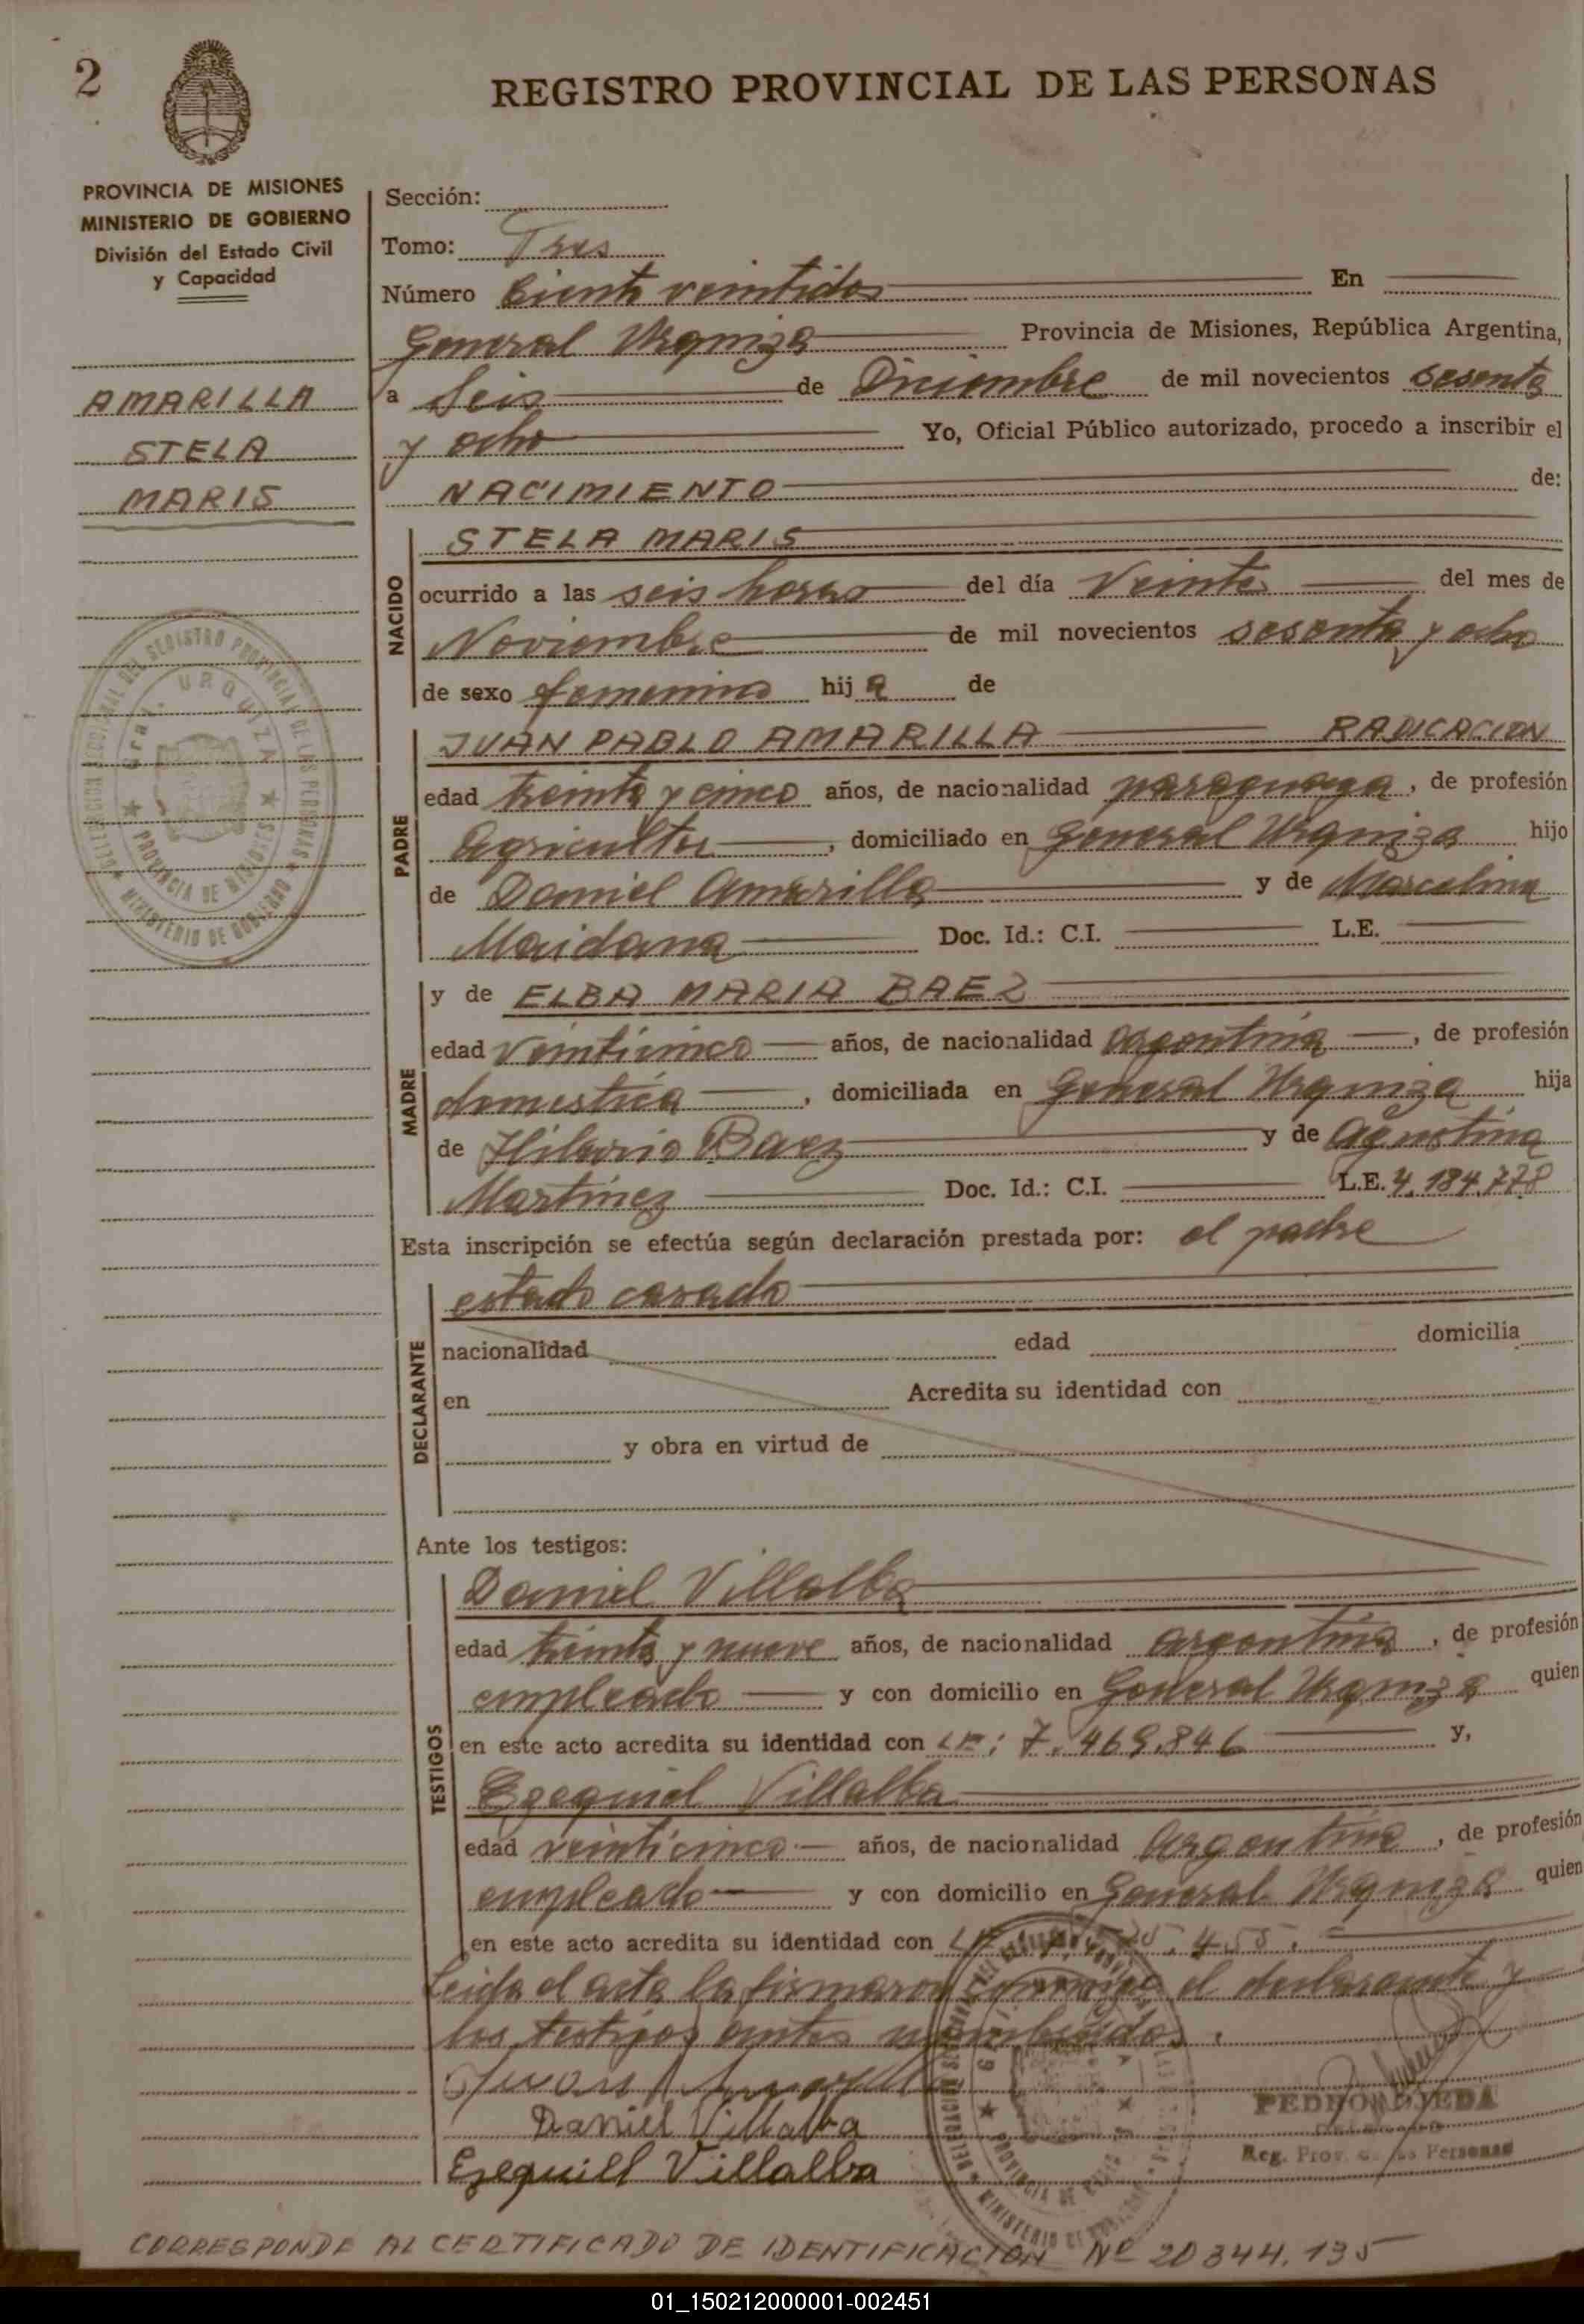 2
REGISTRO PROVINCIAL DE LAS PERSONAS
PROVINCIA DE MISIONES
MINISTERIO DE GOBIERNO
División del Estado Civil
y Capacidad
AMARILLA
STELA
MARIS
Sección:
Tomo: Tres
Número Ciento veintidos En
General Urquiza Provincia de Misiones, República Argentina,
a Seis de Diciembre de mil novecientos sesenta
y ocho Yo, Oficial Público autorizado, procedo a inscribir el
NACIMIENTO de:
NACIDO
STELA MARIS
ocurrido a las seis horas del día Veinte del mes de
Noviembre de mil novecientos sesenta y ocho
de sexo femenino hij a de
PADRE
JUAN PABLO AMARILLA RADICACION
edad treinta y cinco años, de nacionalidad paraguaya, de profesión
agricultor, domiciliado en General Urquiza hijo
de Daniel Amarilla y de Marcelina
Maidana Doc. Id.: C.I. L.E.
MADRE
y de ELBA MARIA BAEZ
edad veinticinco años, de nacionalidad argentina, de profesión
domestica, domiciliada en General Urquiza hija
de Hilario Baez y de Agustina
Martinez Doc. Id.: C.I. L.E. 4.184.778
Esta inscripción se efectúa según declaración prestada por: el padre
DECLARANTE
estado casado
nacionalidad edad domicilia
en Acredita su identidad con
y obra en virtud de
Ante los testigos:
TESTIGOS
Daniel Villalba
edad treinta y nueve años, de nacionalidad argentina, de profesión
empleado y con domicilio en General Urquiza quien
en este acto acredita su identidad con LE: 7.469.846 y,
Ezequiel Villalba
edad veinticinco años, de nacionalidad argentina, de profesión
empleado y con domicilio en General Urquiza quien
en este acto acredita su identidad con
Leida el acta la firmaron conmigo el declarante y
los testigos antes nombrados.
Daniel Villalba
Ezequiell Villalba
PEDRO OJEDA
Reg. Prov. de las Personas
CORRESPONDE AL CERTIFICADO DE IDENTIFICACION Nº 20344.135
01_150212000001-002451